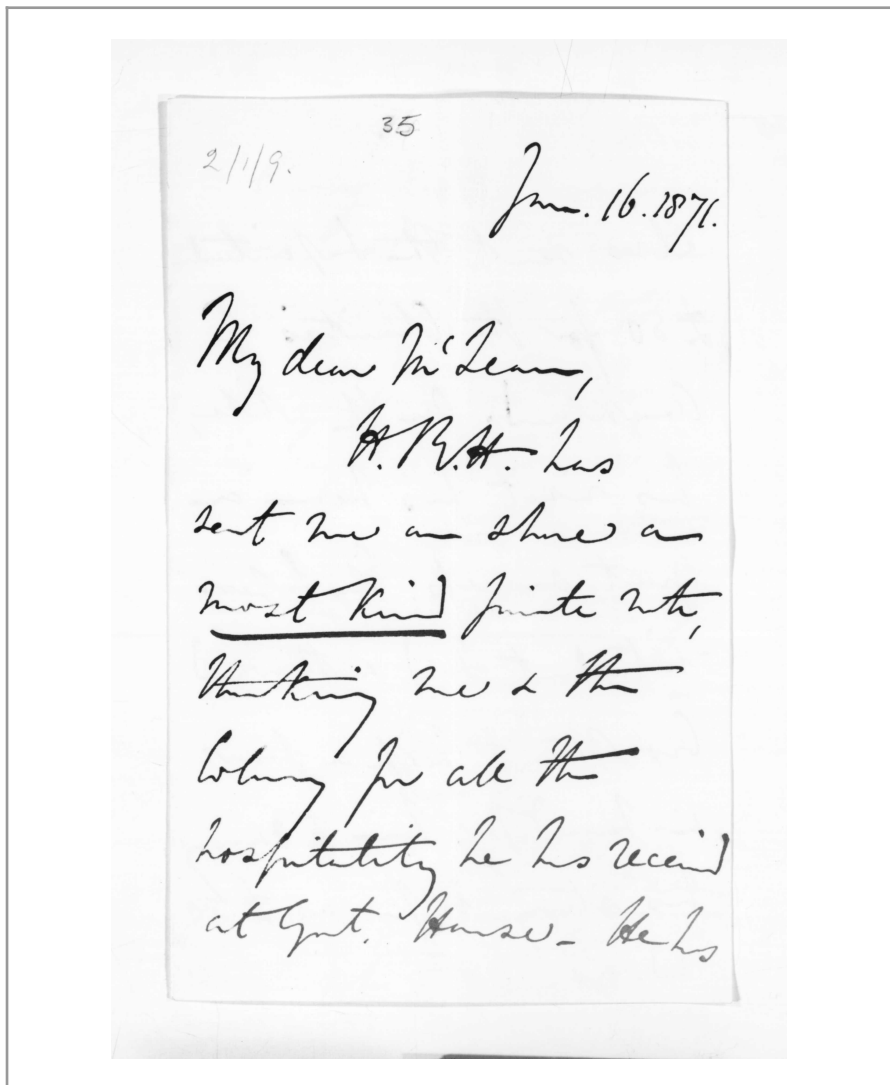 35
2/1/9.
Jan. 16. 1871.
My dear McLean,
H.R.H. has
sent me on shore a
most kind private note,
thanking me & the
Colony for all the
hospitality he has received
at Govt. House - He has